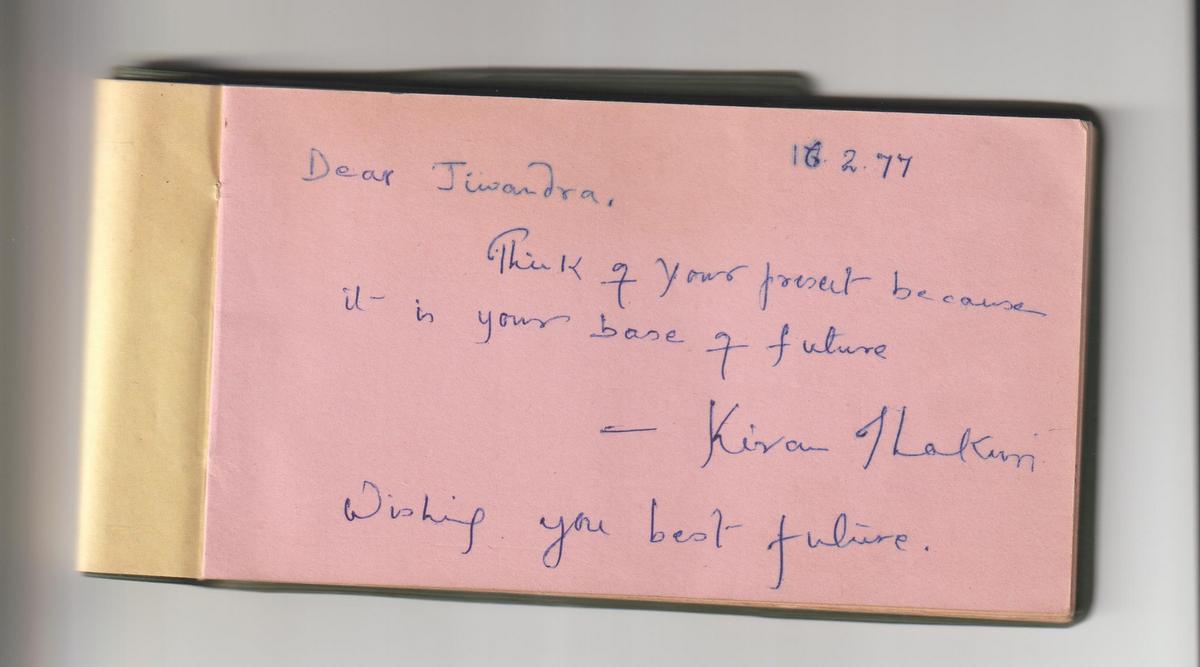 16.2.77
Dear Jiwandra,
Think of your present because
it is your base of future
— Kiran Thakuri
Wishing you best future.